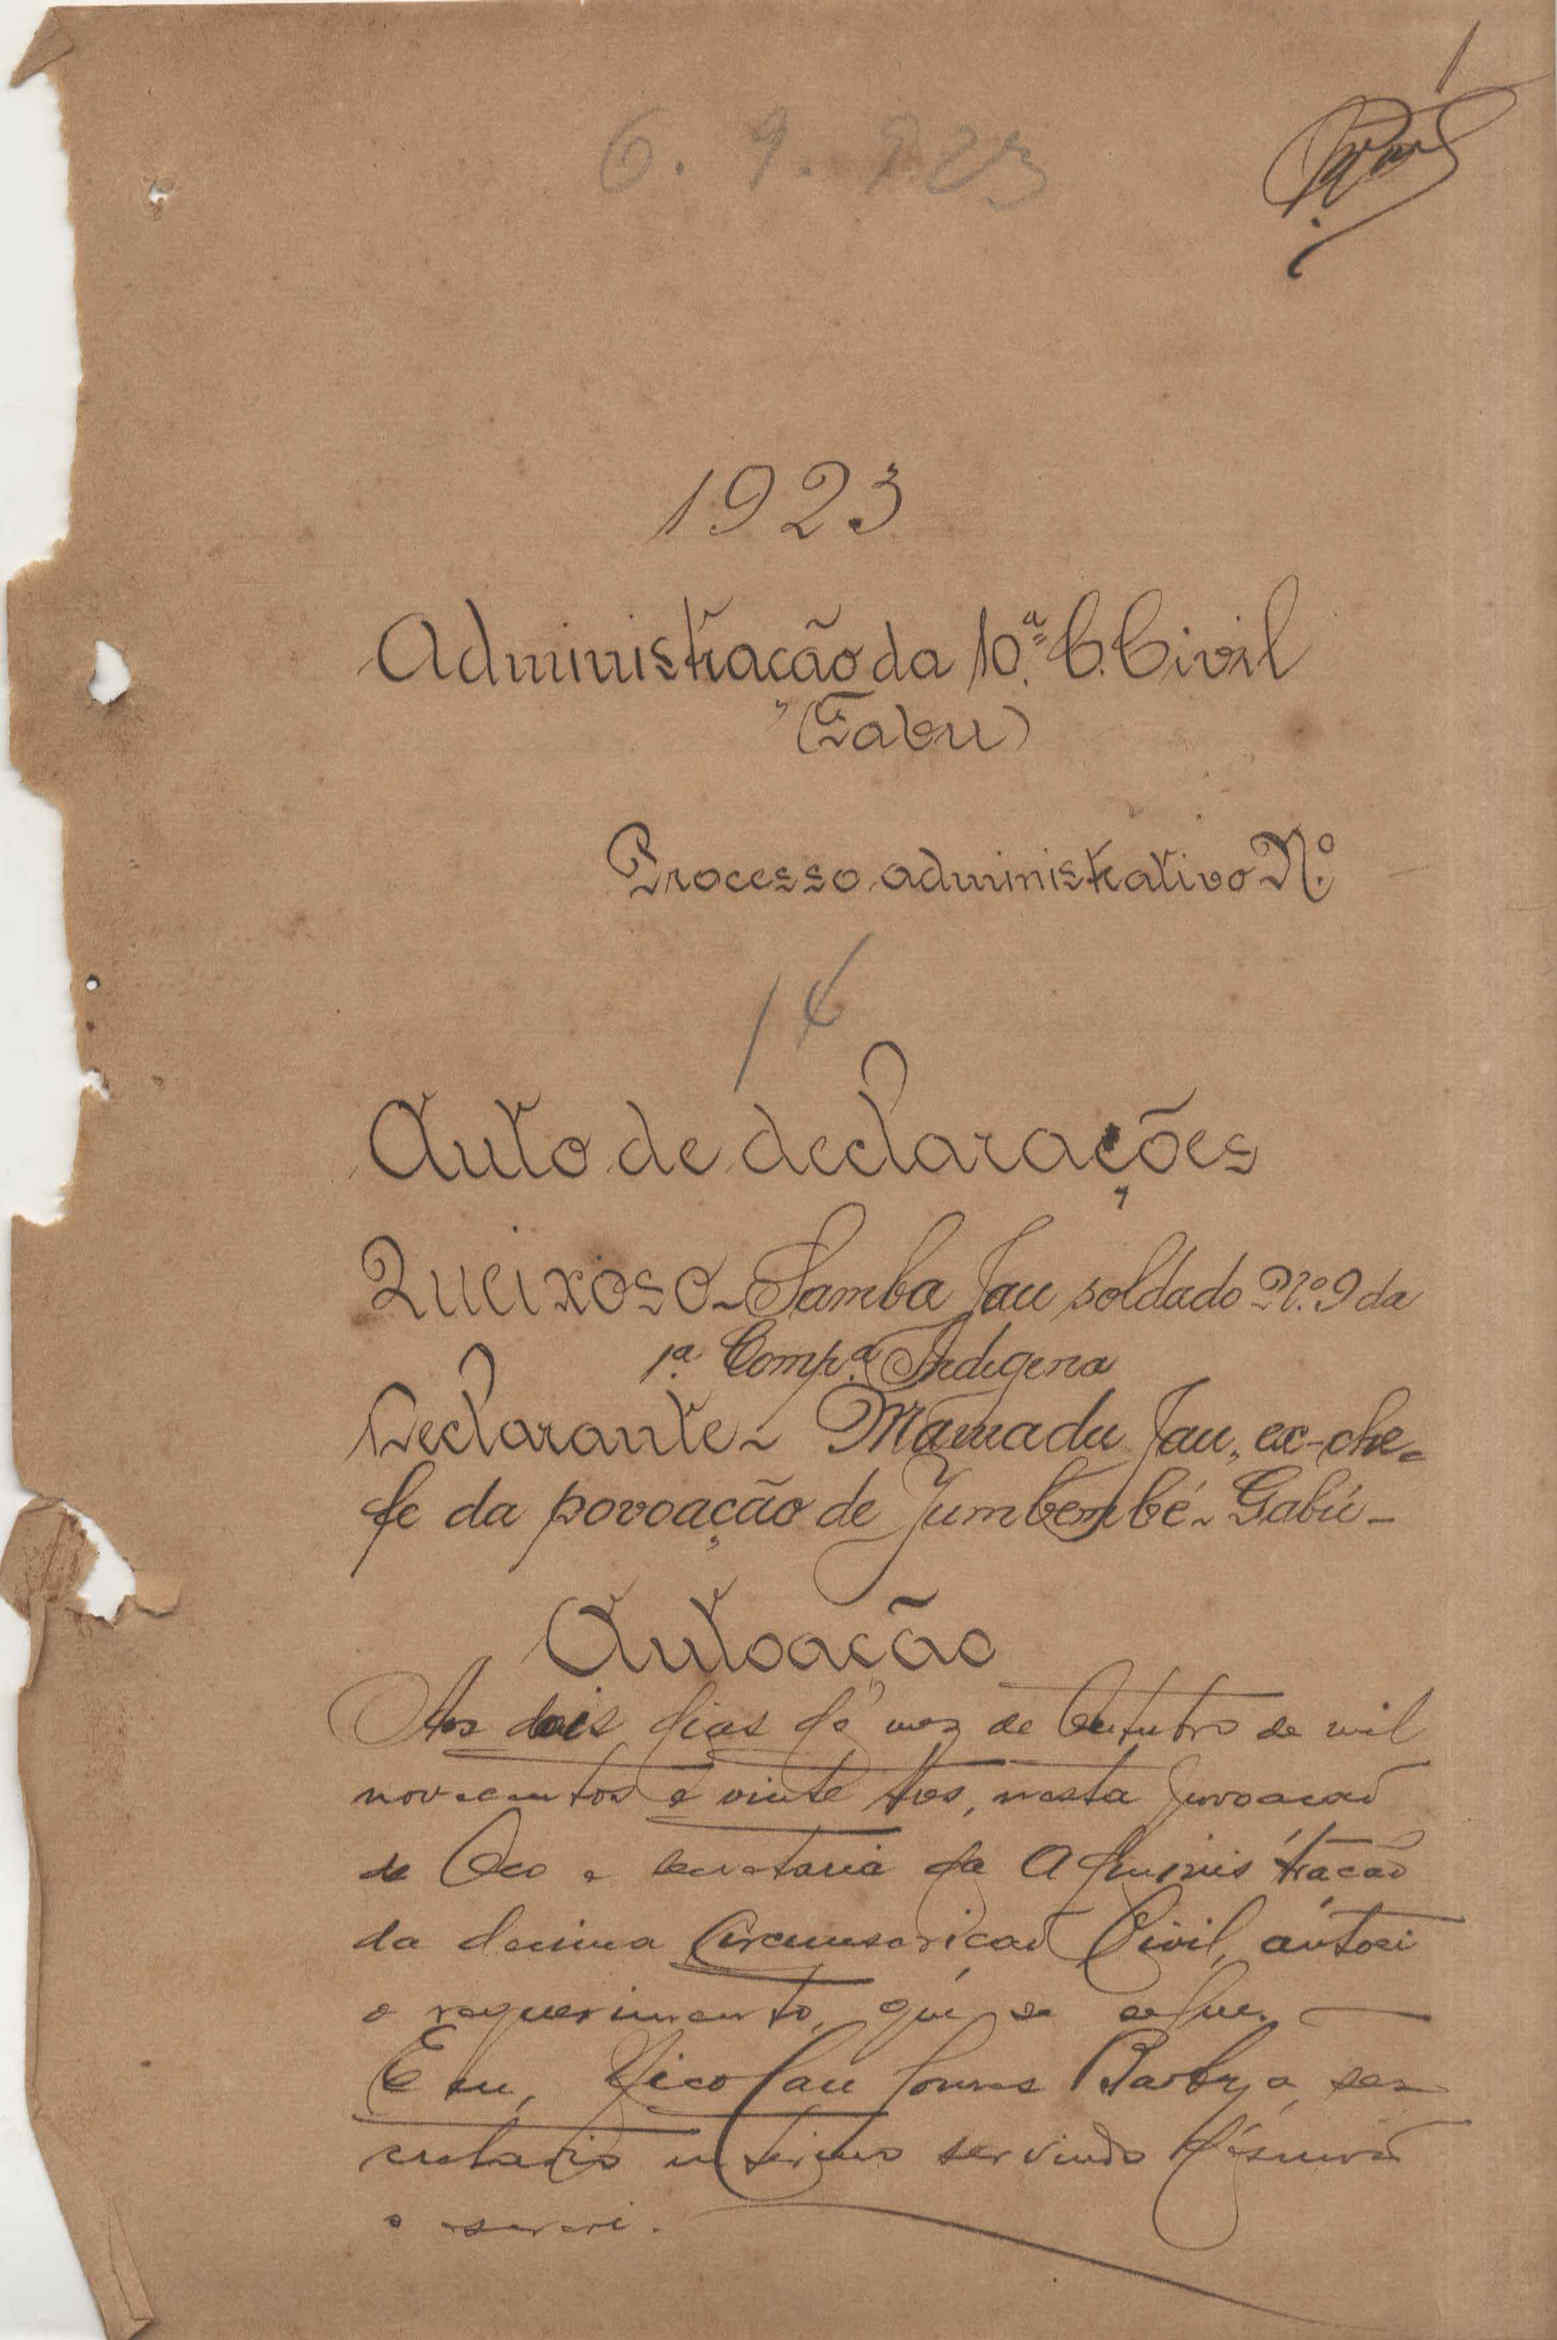 1
6.9.923
1923
Administração da 10.ª C. Civil
(Gabu)
Processo administrativo N.º
14
Auto de declarações
Queixoso - Samba Jau soldado N.º 9 da
1.ª Comp.ª Indigena
Declarante - Mamadu Jau, ex-che-
fe da povoação de Jumbembé - Gabú -
Autoação
Aos dois dias do mez de Outubro de mil
novecentos e vinte tres, nesta povoação
de Oco e secretaria da Administração
da decima Circumscrição Civil, autoei
o requerimento, que se segue. —
E eu, Nicolau Gomes Barbosa, sec
cretario interino servindo d'escrivão
o escrevi.